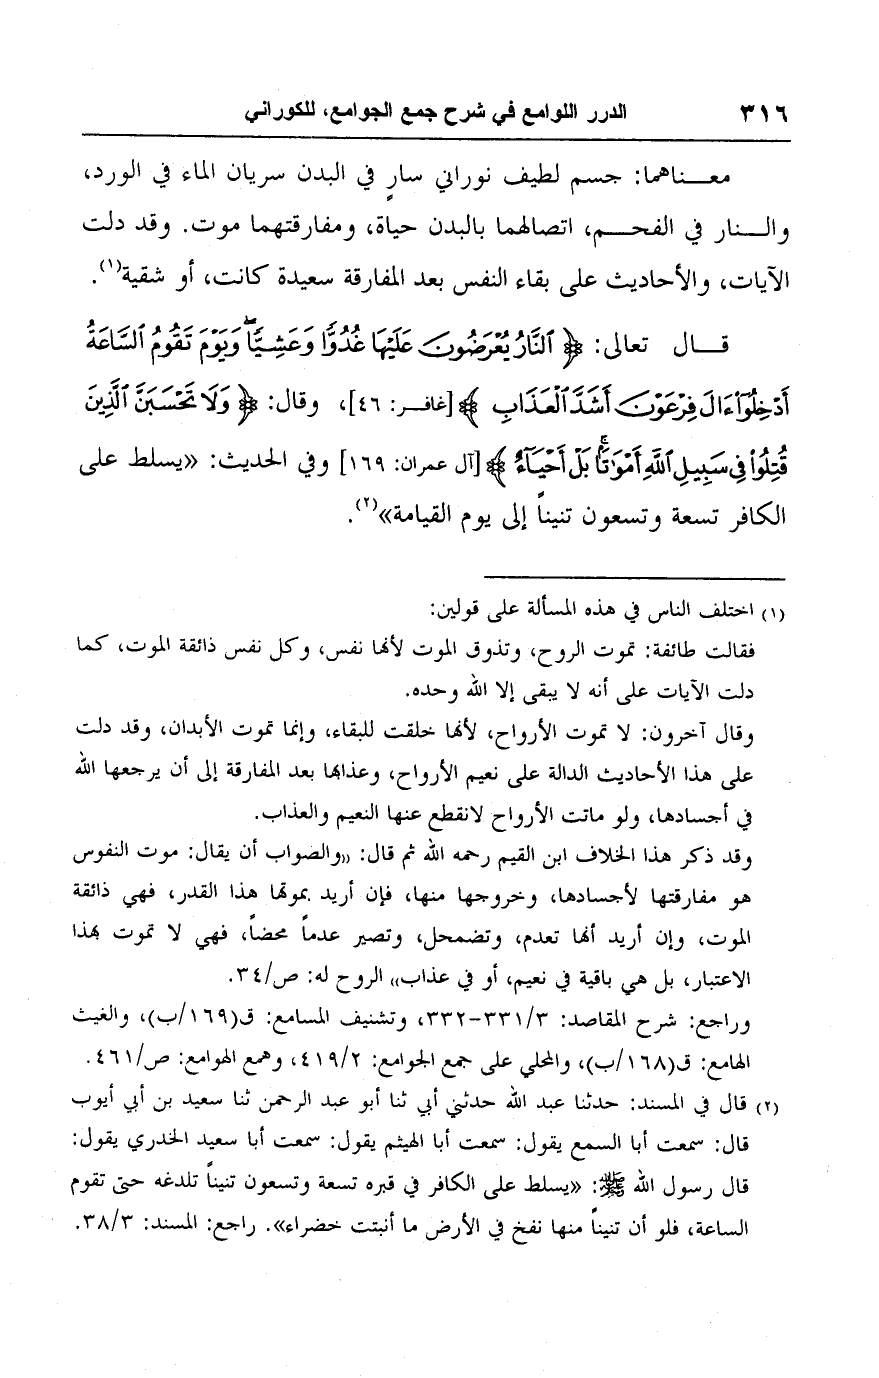 ٣١٦ الدرر اللوامع في شرح جمع الجوامع، للكوراني
معـــناهما: جسم لطيف نوراني سارٍ في البدن سريان الماء في الورد،
والـــنار في الفحـــم، اتصالهما بالبدن حياة، ومفارقتهما موت. وقد دلت
الآيات، والأحاديث على بقاء النفس بعد المفارقة سعيدة كانت، أو شقية(١).
قـــال تعالى: ﴿ ٱلنَّارُ يُعْرَضُونَ عَلَيْهَا غُدُوًّا وَعَشِيًّا ۖ وَيَوْمَ تَقُومُ ٱلسَّاعَةُ
أَدْخِلُوٓا۟ ءَالَ فِرْعَوْنَ أَشَدَّ ٱلْعَذَابِ ﴾ [غافـــر: ٤٦]، وقال: ﴿ وَلَا تَحْسَبَنَّ ٱلَّذِينَ
قُتِلُوا۟ فِى سَبِيلِ ٱللَّهِ أَمْوَٰتًۢا ۚ بَلْ أَحْيَآءٌ ﴾ [آل عمران: ١٦٩] وفي الحديث: «يسلط على
الكافر تسعة وتسعون تنيناً إلى يوم القيامة»(٢).
(١) اختلف الناس في هذه المسألة على قولين:
فقالت طائفة: تموت الروح، وتذوق الموت لأنها نفس، وكل نفس ذائقة الموت، كما
دلت الآيات على أنه لا يبقى إلا الله وحده.
وقال آخرون: لا تموت الأرواح، لأنها خلقت للبقاء، وإنما تموت الأبدان، وقد دلت
على هذا الأحاديث الدالة على نعيم الأرواح، وعذابها بعد المفارقة إلى أن يرجعها الله
في أجسادها، ولو ماتت الأرواح لانقطع عنها النعيم والعذاب.
وقد ذكر هذا الخلاف ابن القيم رحمه الله ثم قال: «والصواب أن يقال: موت النفوس
هو مفارقتها لأجسادها، وخروجها منها، فإن أريد بموتها هذا القدر، فهي ذائقة
الموت، وإن أريد أنها تعدم، وتضمحل، وتصير عدماً محضاً، فهي لا تموت بهذا
الاعتبار، بل هي باقية في نعيم، أو في عذاب» الروح له: ص/٣٤.
وراجع: شرح المقاصد: ٣/ ٣٣١-٣٣٢، وتشنيف المسامع: ق(١٦٩/ب)، والغيث
الهامع: ق(١٦٨/ب)، والمحلي على جمع الجوامع: ٢/ ٤١٩، وهمع الهوامع: ص/٤٦١.
(٢) قال في المسند: حدثنا عبد الله حدثني أبي ثنا أبو عبد الرحمن ثنا سعيد بن أبي أيوب
قال: سمعت أبا السمع يقول: سمعت أبا الهيثم يقول: سمعت أبا سعيد الخدري يقول:
قال رسول الله ﷺ: «يسلط على الكافر في قبره تسعة وتسعون تنيناً تلدغه حتى تقوم
الساعة، فلو أن تنيناً منها نفخ في الأرض ما أنبتت خضراء». راجع: المسند: ٣/ ٣٨.